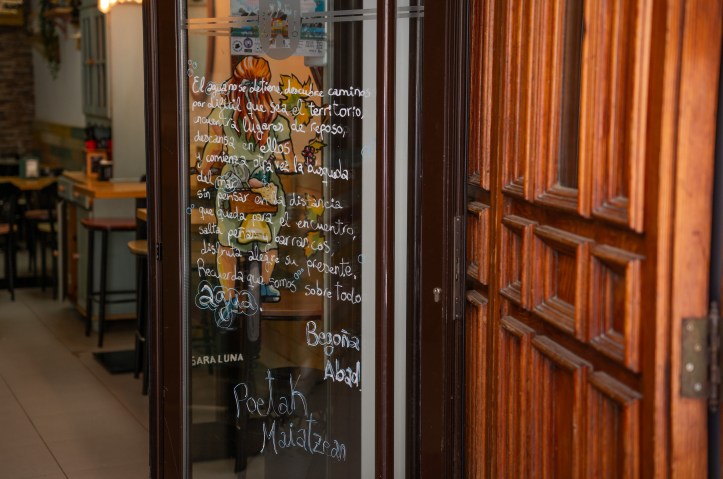 El agua no se detiene, descubre caminos
por difícil que sea el territorio,
encuentra lugares de reposo,
descansa en ellos
y comienza otra vez la búsqueda
del mar
sin pensar en la distancia
que queda para el encuentro,
salta peñas y barrancos,
disfruta alegre su presente.
Recuerda que somos sobre todo
agua.
Begoña
Abad
SARALUNA
Poetak
Maiatzean